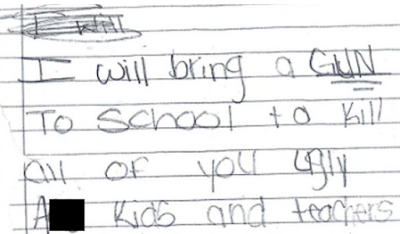 I will
I will bring a GUN
To School to kill
all of you ugly
A kids and teachers